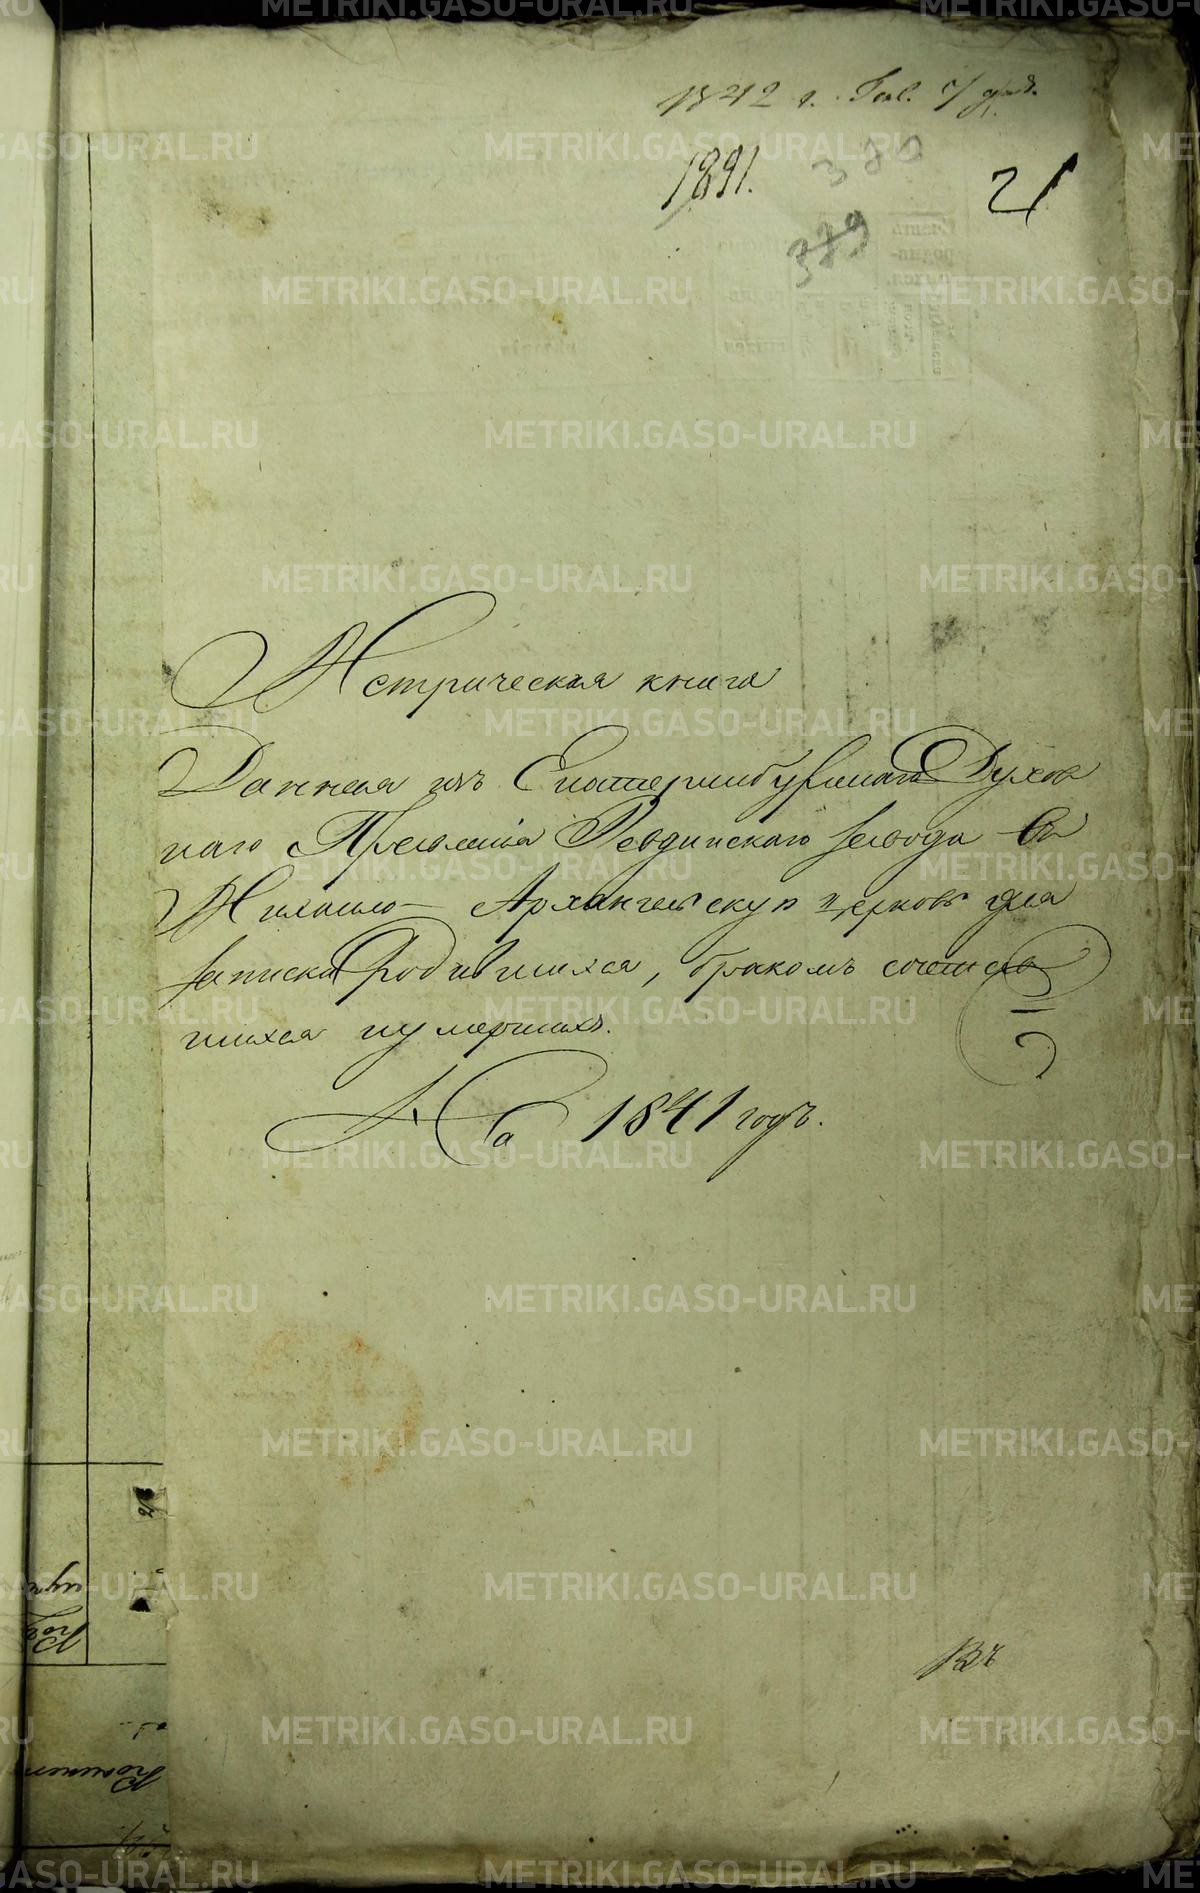 1842 г. Генв. 7 дня.
1891.
380
379
21
Метрическая книга
Данная изъ Екатеринбургскаго Духов
наго Правленія Ревдинскаго завода въ
Михаило-Архангельскую церковь для
записки родившихся, бракомъ сочетав
шихся и умершихъ.
На 1841 годъ.
Въ
METRIKI.GASO-URAL.RU